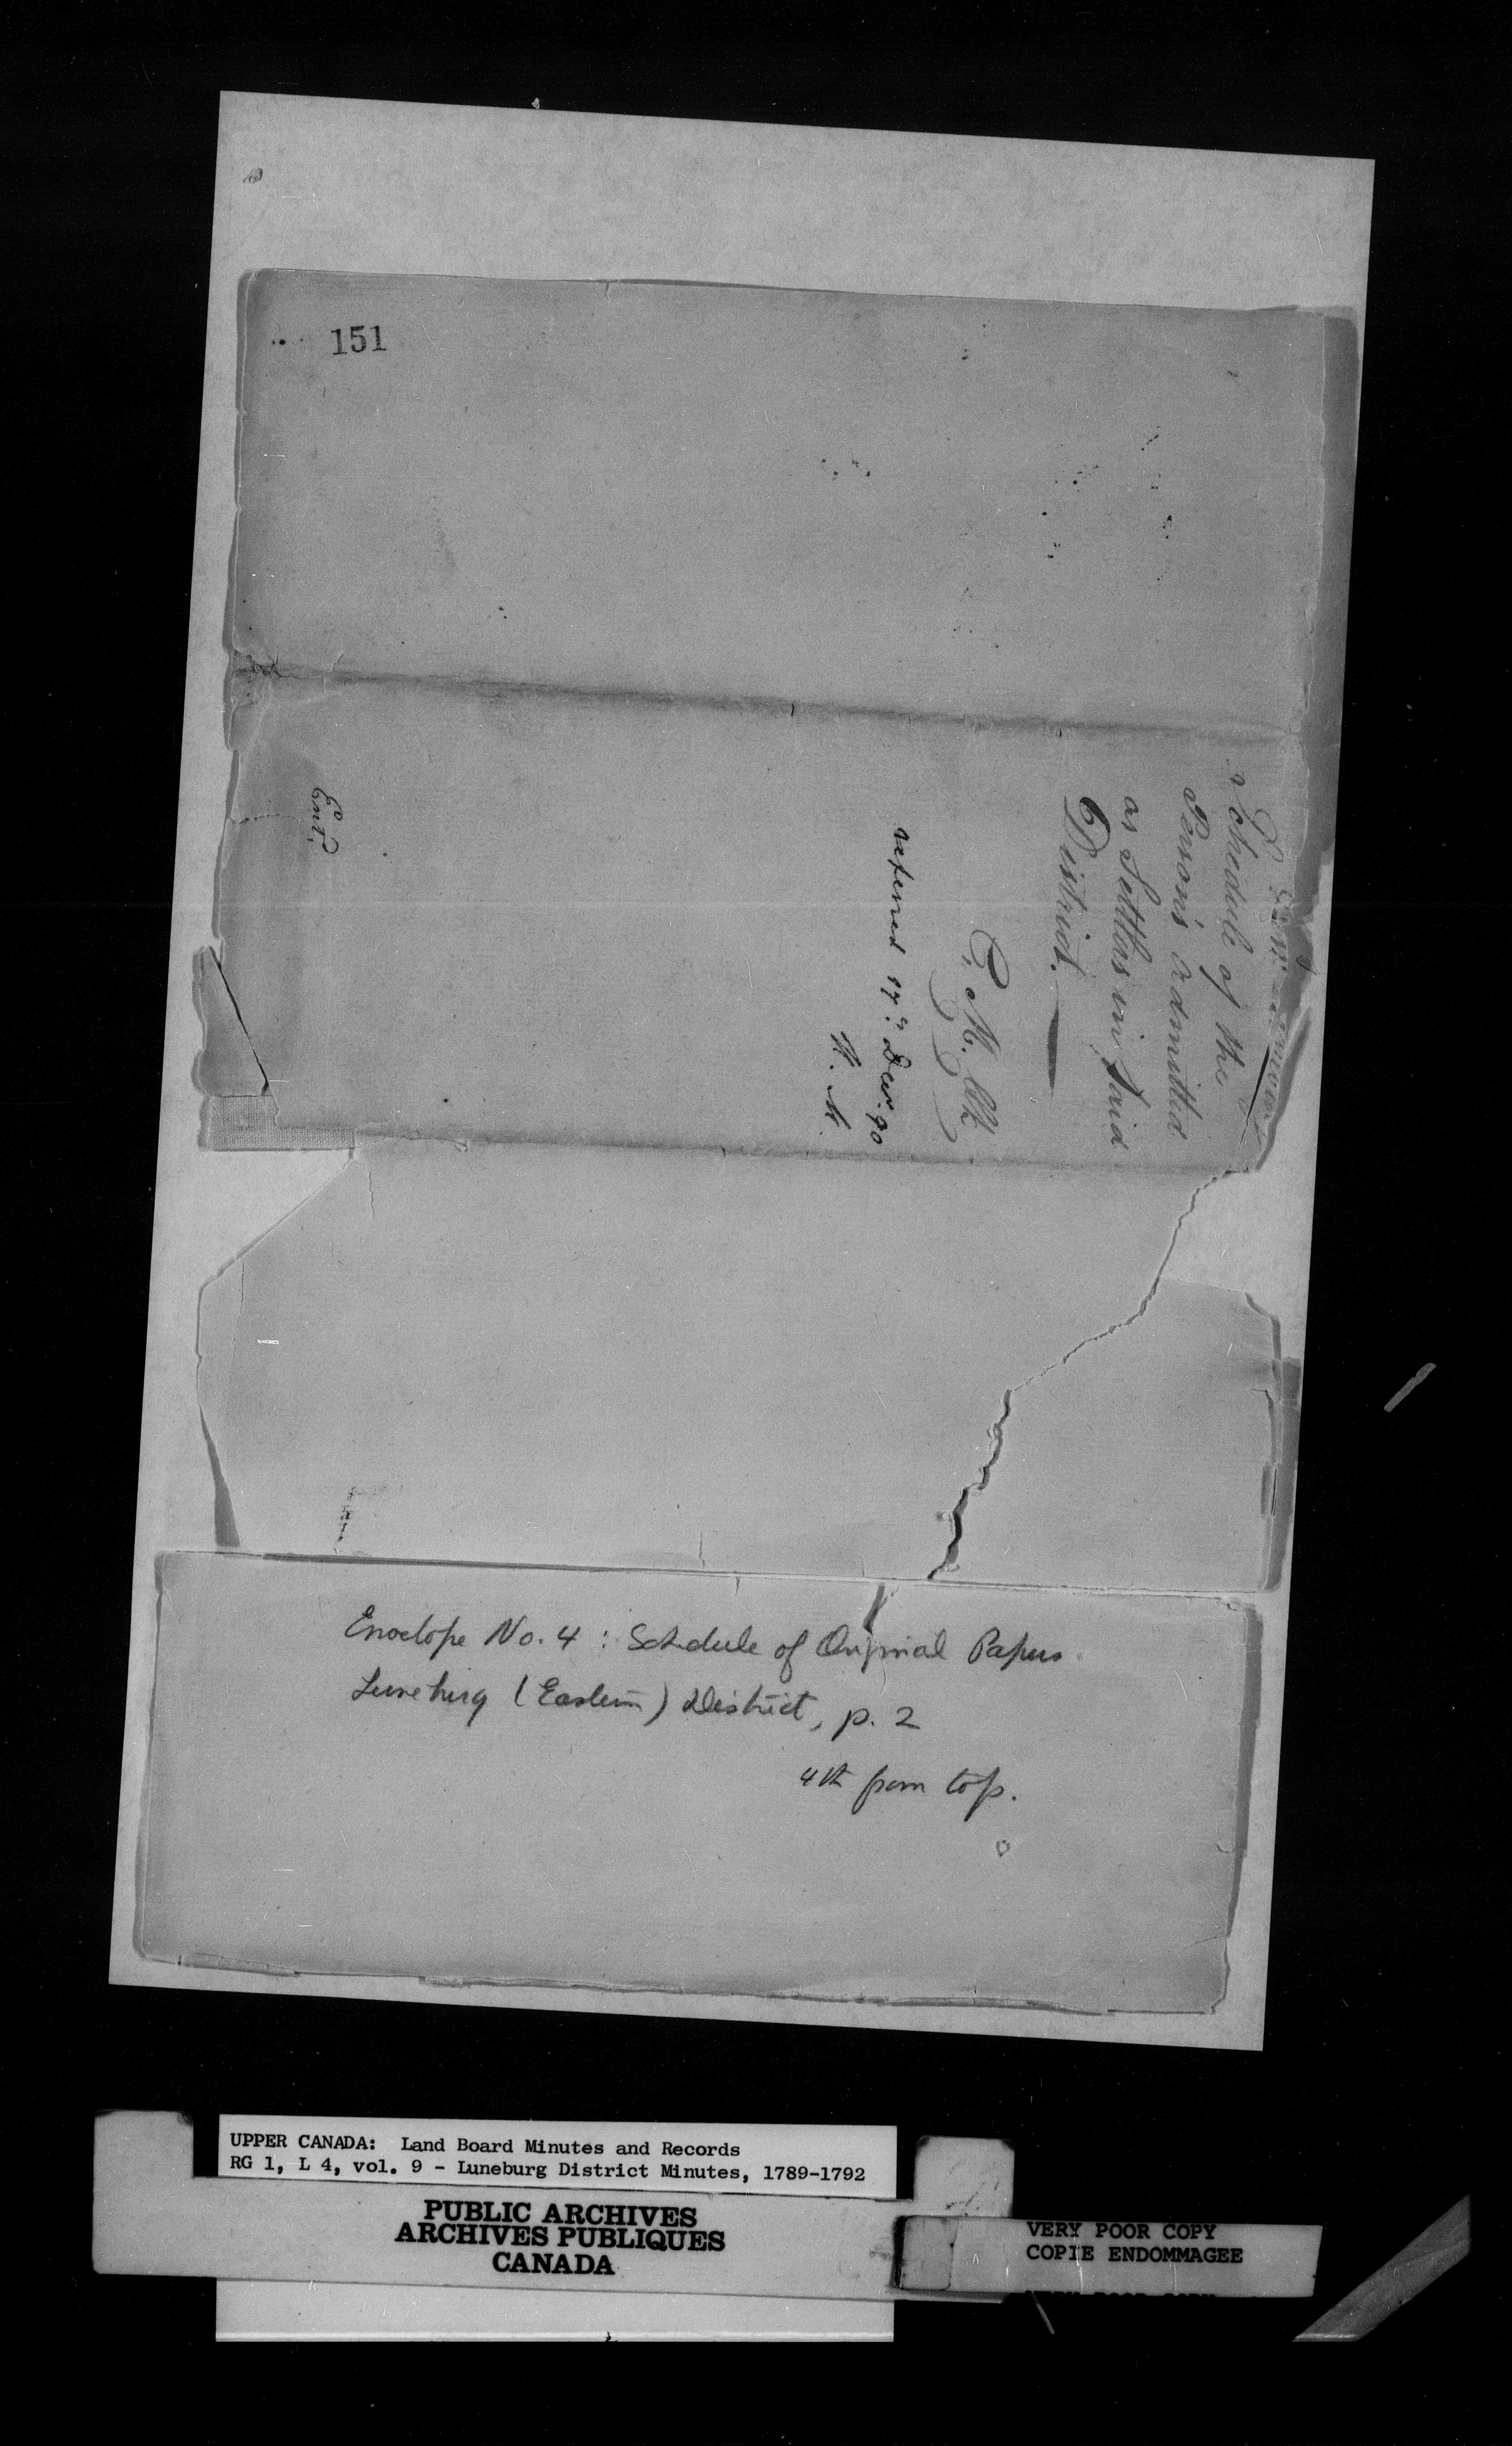 151
Schedule of the
Persons admitted
as Settlers in said
District.
C. M. Clk
referred 17th Decr. 90
H. M.
Ent.
Envelope No. 4 : Schedule of Original Papers
Luneburg (Eastern) District, p. 2
4th from top.
UPPER CANADA: Land Board Minutes and Records
RG 1, L 4, vol. 9 - Luneburg District Minutes, 1789-1792
PUBLIC ARCHIVES
ARCHIVES PUBLIQUES
CANADA
VERY POOR COPY
COPIE ENDOMMAGEE